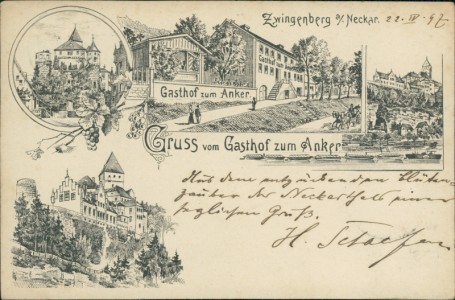 Zwingenberg a/. Neckar. 22. IV. 97
Gasthof zum Anker
Gasthof zum Anker.
Gruss vom Gasthof zum Anker
Aus dem entzückenden Blüten-
zauber des Neckarthals einen
herzlichen Gruß.
H. Schaefer